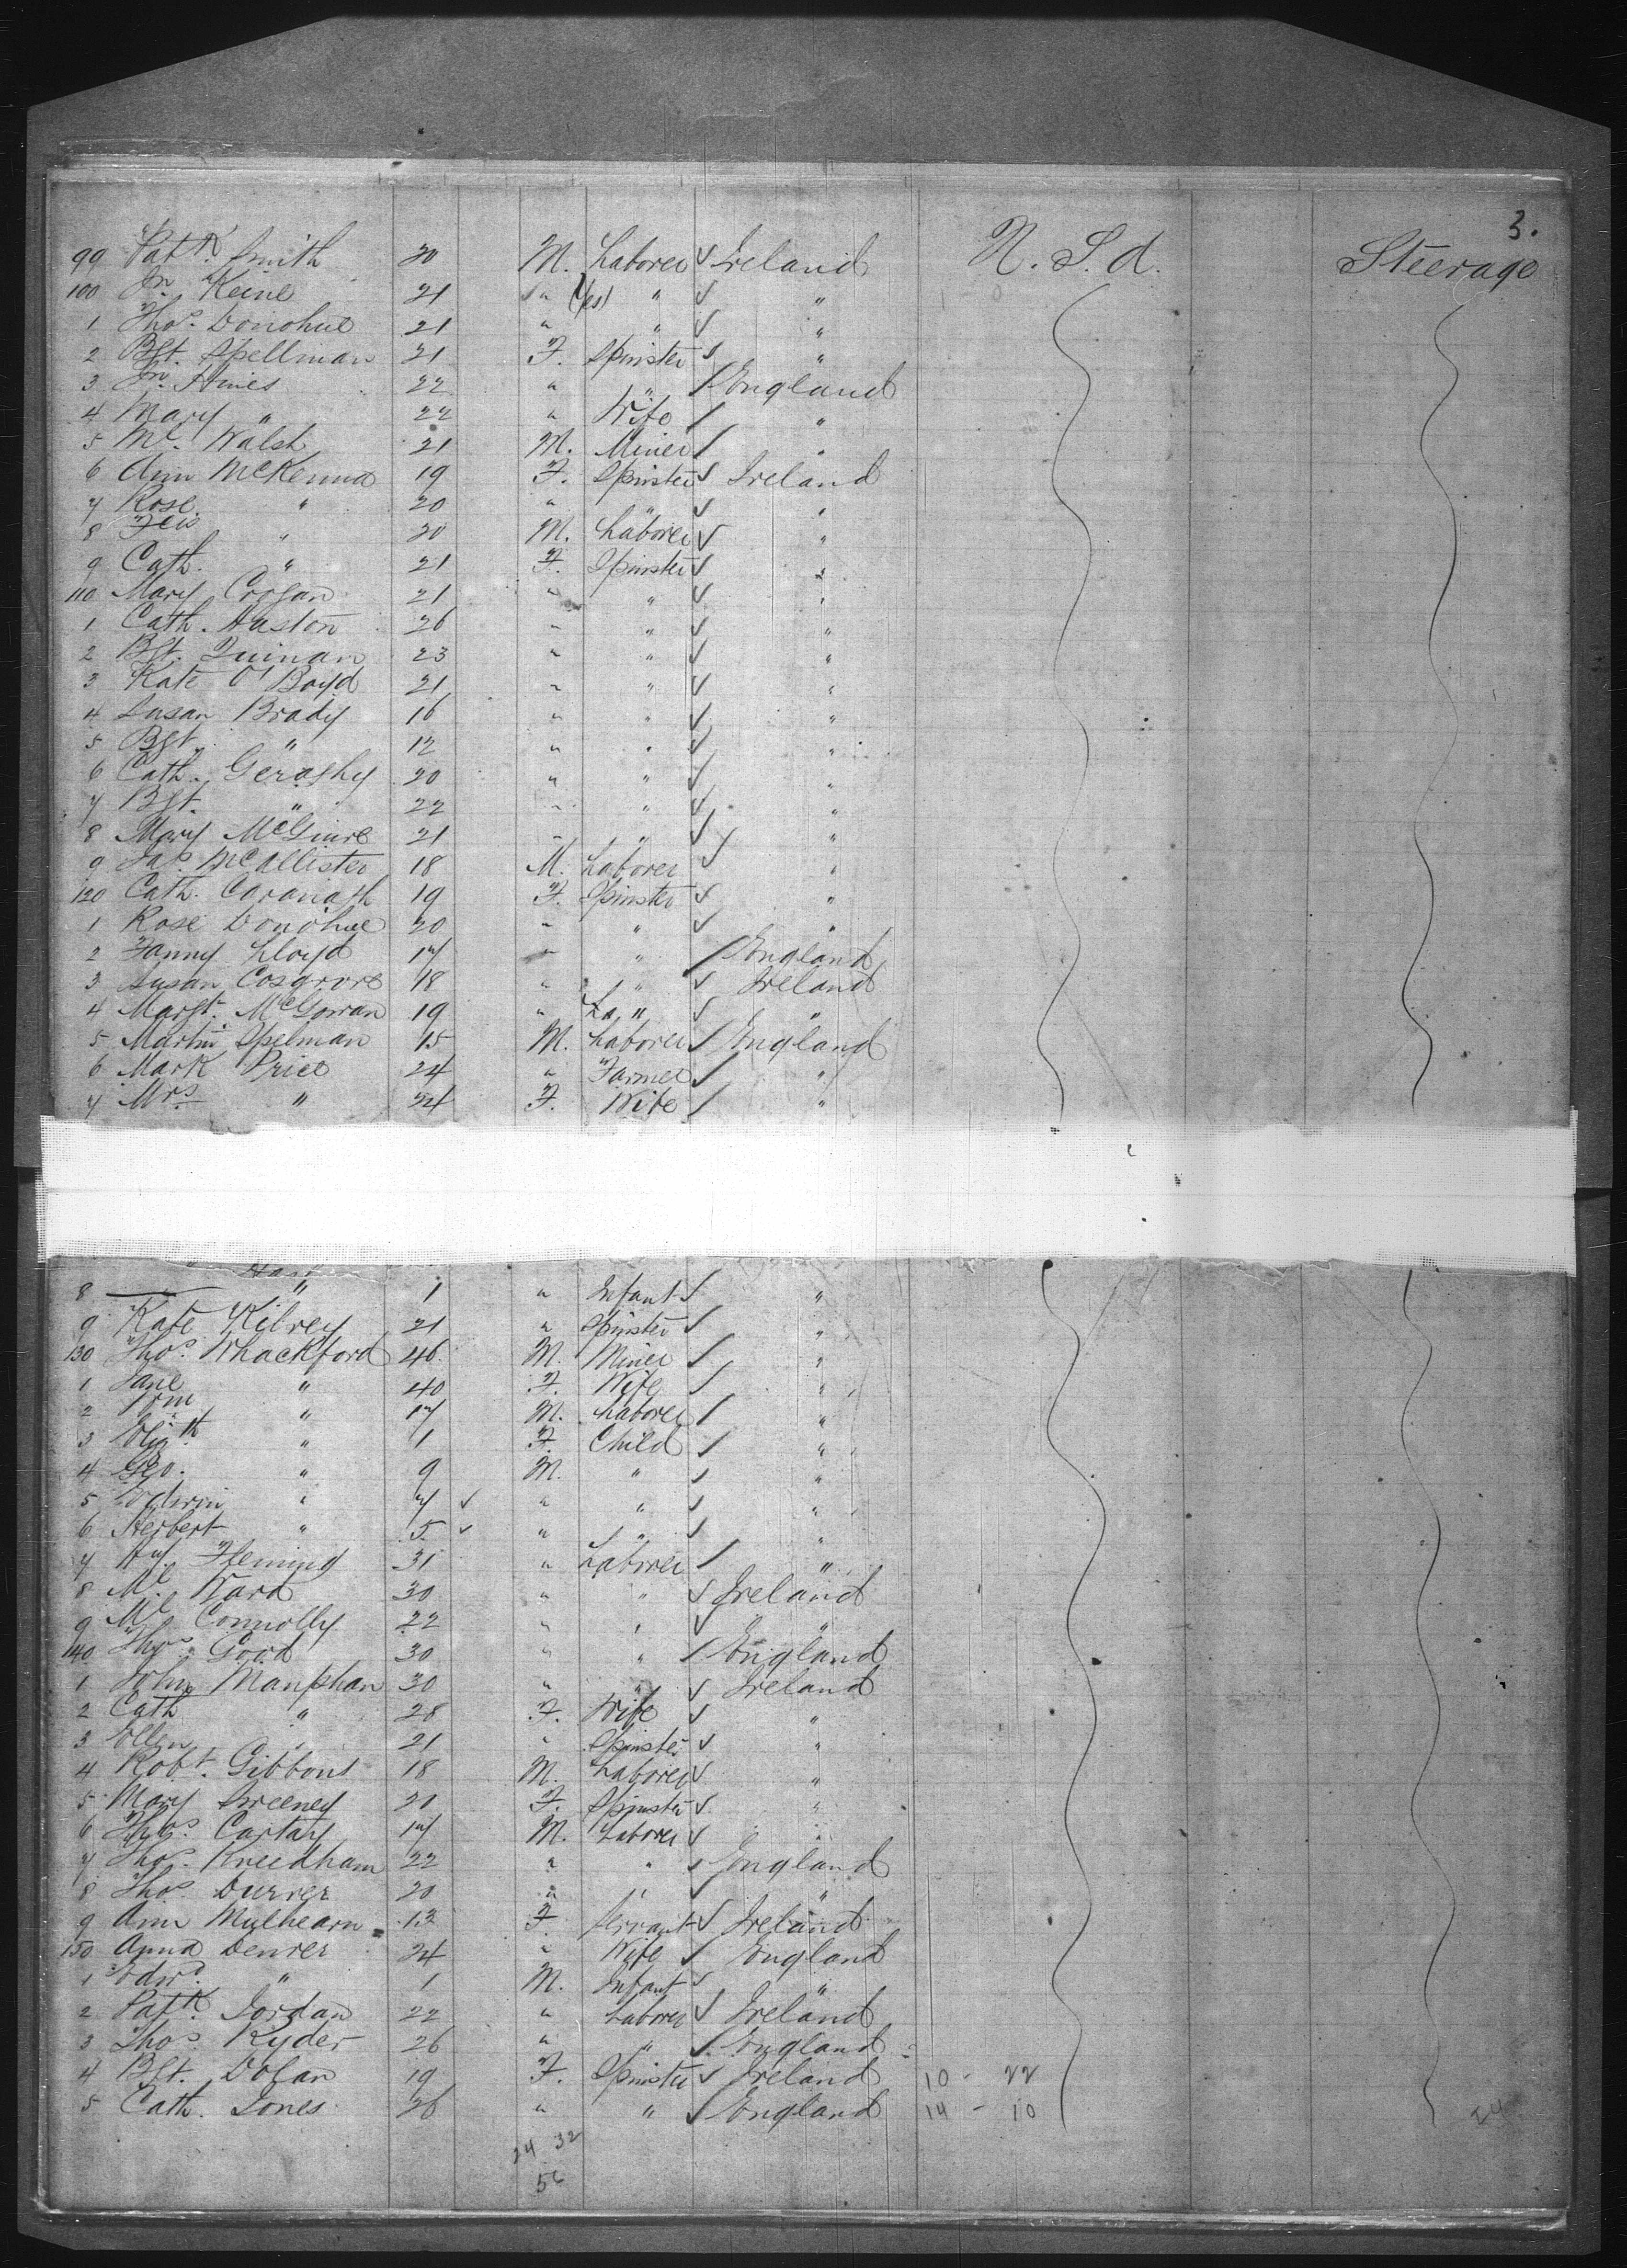 3.
99 Patk. Smith 30 M. Laborer ✓ Ireland U. S. A. Steerage
100 Jn. Keine 21 " " ✓ "
1 Thos. Donohue 21 " " ✓ "
2 Bgt. Spellman 21 F. Spinster ✓ "
3 Jn. Hines 22 " " / England
4 Mary " 22 " Wife / "
5 Ml. Walsh 21 M. Miner / "
6 Ann McKenna 19 F. Spinster ✓ Ireland
7 Rose " 20 " " ✓ "
8 " 30 M. Laborer ✓ "
9 Cath. " 21 F. Spinster ✓ "
110 Mary Crogan 21 " " ✓ "
1 Cath. Haston 26 " " ✓ "
2 Bgt. Quinan 23 " " ✓ "
3 Kate O'Boyd 21 " " ✓ "
4 Susan Brady 16 " " ✓ "
5 Bgt. " 12 " " ✓ "
6 Cath. Geraghy 20 " " ✓ "
7 Bgt. " 22 " " ✓ "
8 Mary McGuire 21 " " ✓ "
9 Jas. McAllister 18 M. Laborer ✓ "
120 Cath. Cavanagh 19 F. Spinster ✓ "
1 Rose Donohue 20 " " ✓ "
2 Fanny Lloyd 17 " " / England
3 Susan Cosgrove 18 " " ✓ Ireland
4 Margt. McGowan 19 " " ✓ "
5 Martin Spelman 15 M. Laborer / England
6 Mark Price 24 " Farmer / "
7 Mrs. " 24 F. Wife / "
8 " 1 " Infant ✓ "
9 Kate Kilrey 21 " Spinster ✓ "
130 Thos. Whackford 46 M. Miner / "
1 Jane " 40 F. Wife / "
2 Wm " 17 M. Laborer / "
3 Elizth " 1 F. Child / "
4 Geo. " 9 M. " / "
5 Edwin " 7 ✓ " " / "
6 Herbert " 5 ✓ " " / "
7 Hy. Fleming 31 " Laborer / "
8 Ml. Ward 30 " " ✓ Ireland
9 Ml. Connolly 22 " " ✓ "
140 Thos. Good 30 " " / England
1 John Manphan 30 " " ✓ Ireland
2 Cath " 28 F. Wife ✓ "
3 Ellen " 21 " Spinster ✓ "
4 Robt. Gibbons 18 M. Laborer ✓ "
5 Mary Sweeney 20 F. Spinster ✓ "
6 Thos. Cartay 17 M. Laborer ✓ "
7 Thos. Kneedham 22 " " / England
8 Thos. Durrer 20 " " / "
9 Ann Mulhearn 13 F. Servant ✓ Ireland
150 Anna Denver 24 " Wife / England
1 Edwd. " 1 M. Infant / "
2 Patk. Jordan 22 " Laborer ✓ Ireland
3 Thos. Ryder 26 " " / England
4 Bgt. Dolan 19 F. Spinster ✓ Ireland 10 - 22
5 Cath. Jones 26 " " / England 14 - 10
24 32
56